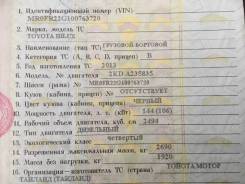 1. Идентификационный номер (VIN)
MR0FR22G100763720
2. Марка, модель ТС
TOYOTA HILUX
3. Наименование (тип ТС) ГРУЗОВОЙ-БОРТОВОЙ
4. Категория ТС (A, B, C, D, прицеп) B
5. Год изготовления ТС 2013
6. Модель, № двигателя 2KD A235835
7. Шасси (рама) № MR0FR22G100763720
8. Кузов (кабина, прицеп) № ОТСУТСТВУЕТ
9. Цвет кузова (кабины, прицепа) ЧЕРНЫЙ
10. Мощность двигателя, л. с. (кВт) 144 (106)
11. Рабочий объем двигателя, куб. см 2494
12. Тип двигателя ДИЗЕЛЬНЫЙ
13. Экологический класс четвертый
14. Разрешенная максимальная масса, кг 2690
15. Масса без нагрузки, кг 1920
16. Организация—изготовитель ТС (страна) ТОЙОТА МОТОР
ТАЙЛАНД (ТАИЛАНД)